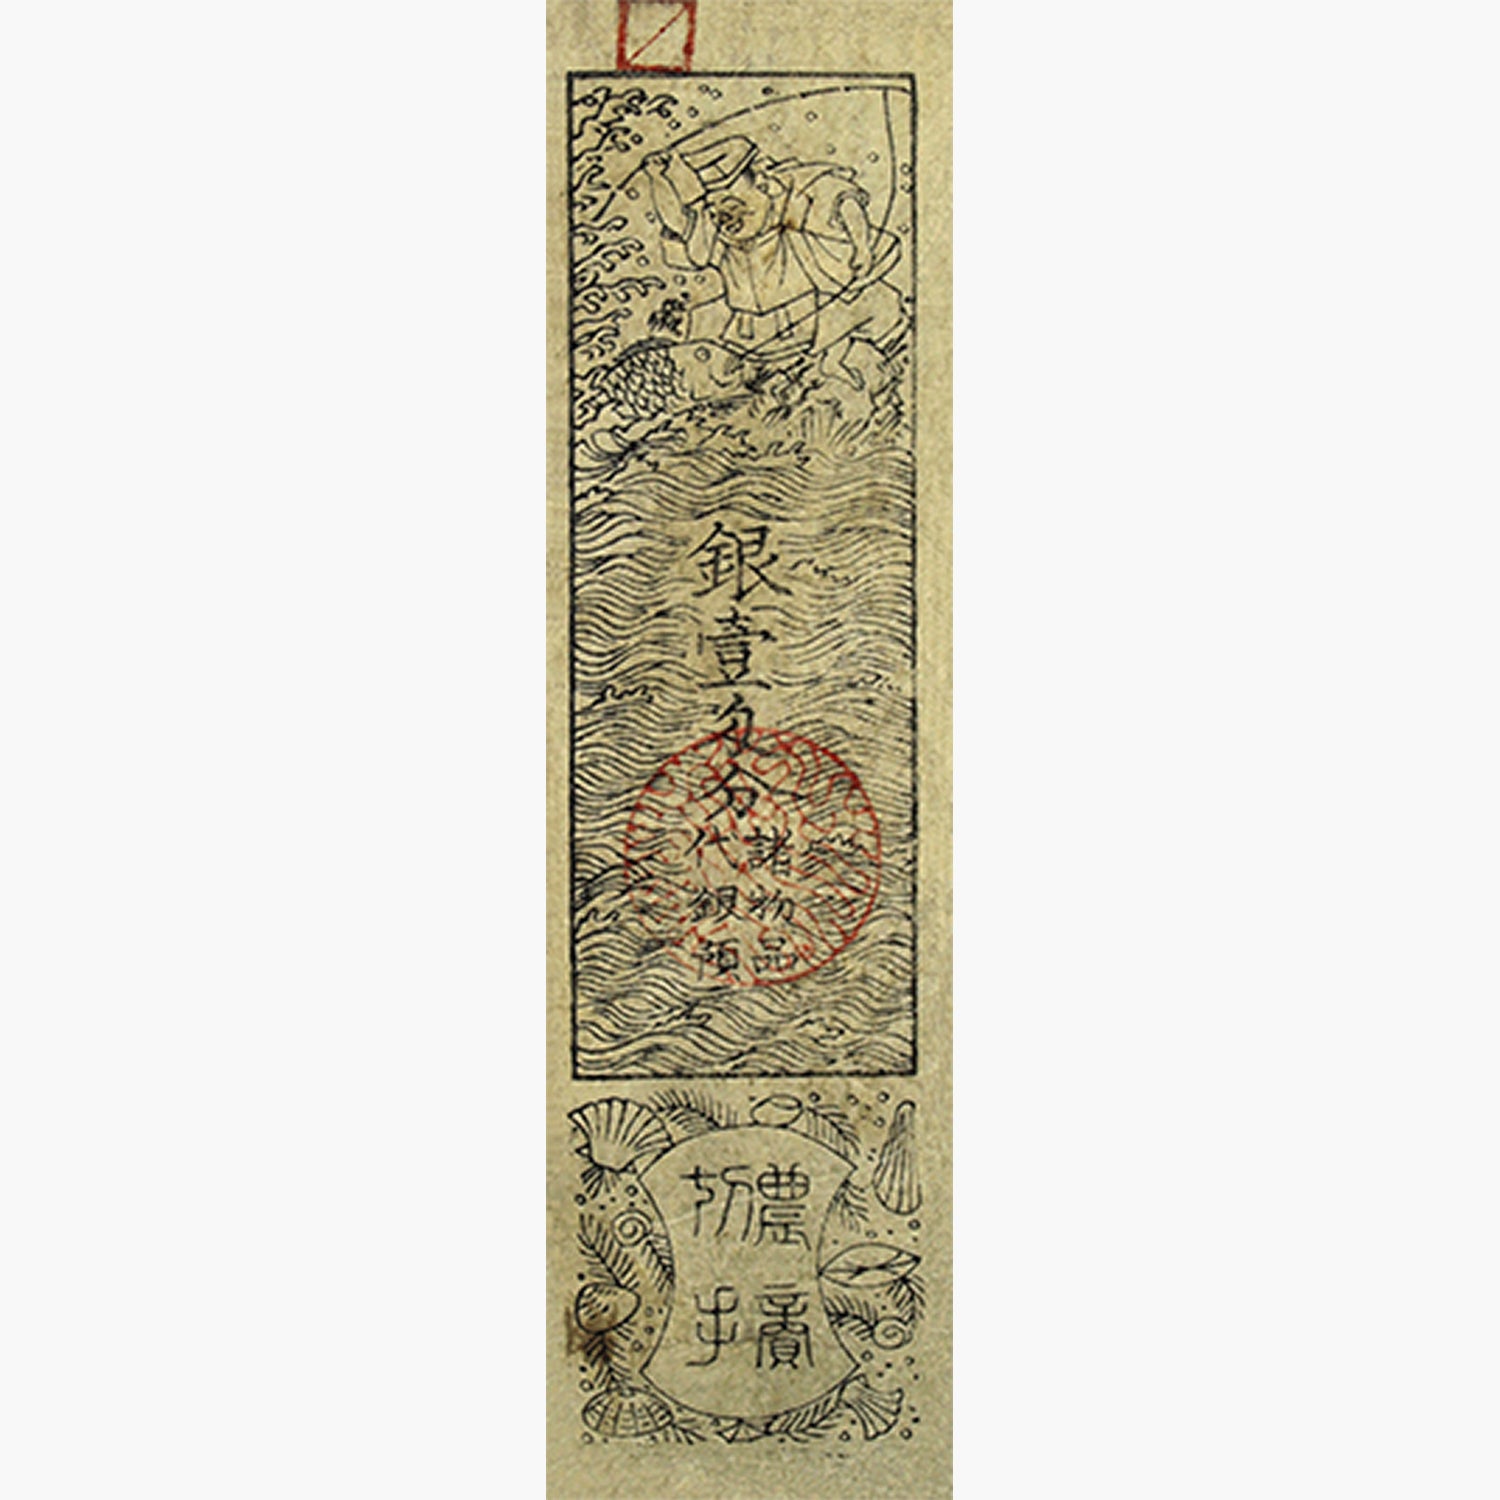 銀壹匁分
諸物品
代銀預
農
切手